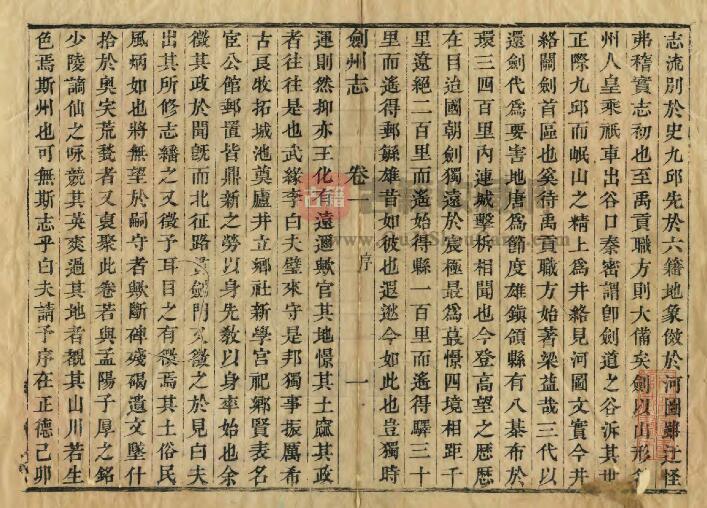 志流別於史九邱先於六籍地象倣於河圖雖迂怪
弗稽實志初也至禹貢職方則大備矣劍以山形
州人皇乘祇車出谷口秦密謂卽劍道之谷泝其世
正際九邱而岷山之精上爲井絡見河圖文實今井
絡關劍首區也奚待禹貢職方始著梁益哉三代以
還劍代爲要害地唐爲節度雄鎮領縣有八棊布於
環三四百里內連城擊柝相聞也今登高望之歷歷
在目迨國朝劍獨遠於宸極最爲蕞憬四境相距千
里遼絕二百里而遙始得縣一百里而遙得驛三十
里而遙得郵繇雄昔如彼也遐逖今如此也豈獨時
劍州志 卷一 序 一
運則然抑亦王化有遠邇歟官其地憬其土窳其政
者往往是也武緣李白夫璧來守是邦獨事振厲希
古良牧拓城池奠廬井立鄉社新學宮祀鄉賢表名
宦公館郵置皆鼎新之勞以身先敎以身率始也余
徵其政於聞旣而北征路劍門又徵之於見白夫
出其所修志繙之又徵予耳目之有徵焉其土俗民
風炳如也將無望於嗣守者歟斷碑殘碣遺文墜什
拾於奧穾荒蓁者又裒聚此卷若與孟陽子厚之銘
少陵謫仙之咏競其英爽過其地者覩其山川若生
色焉斯州也可無斯志乎白夫請予序在正德己卯